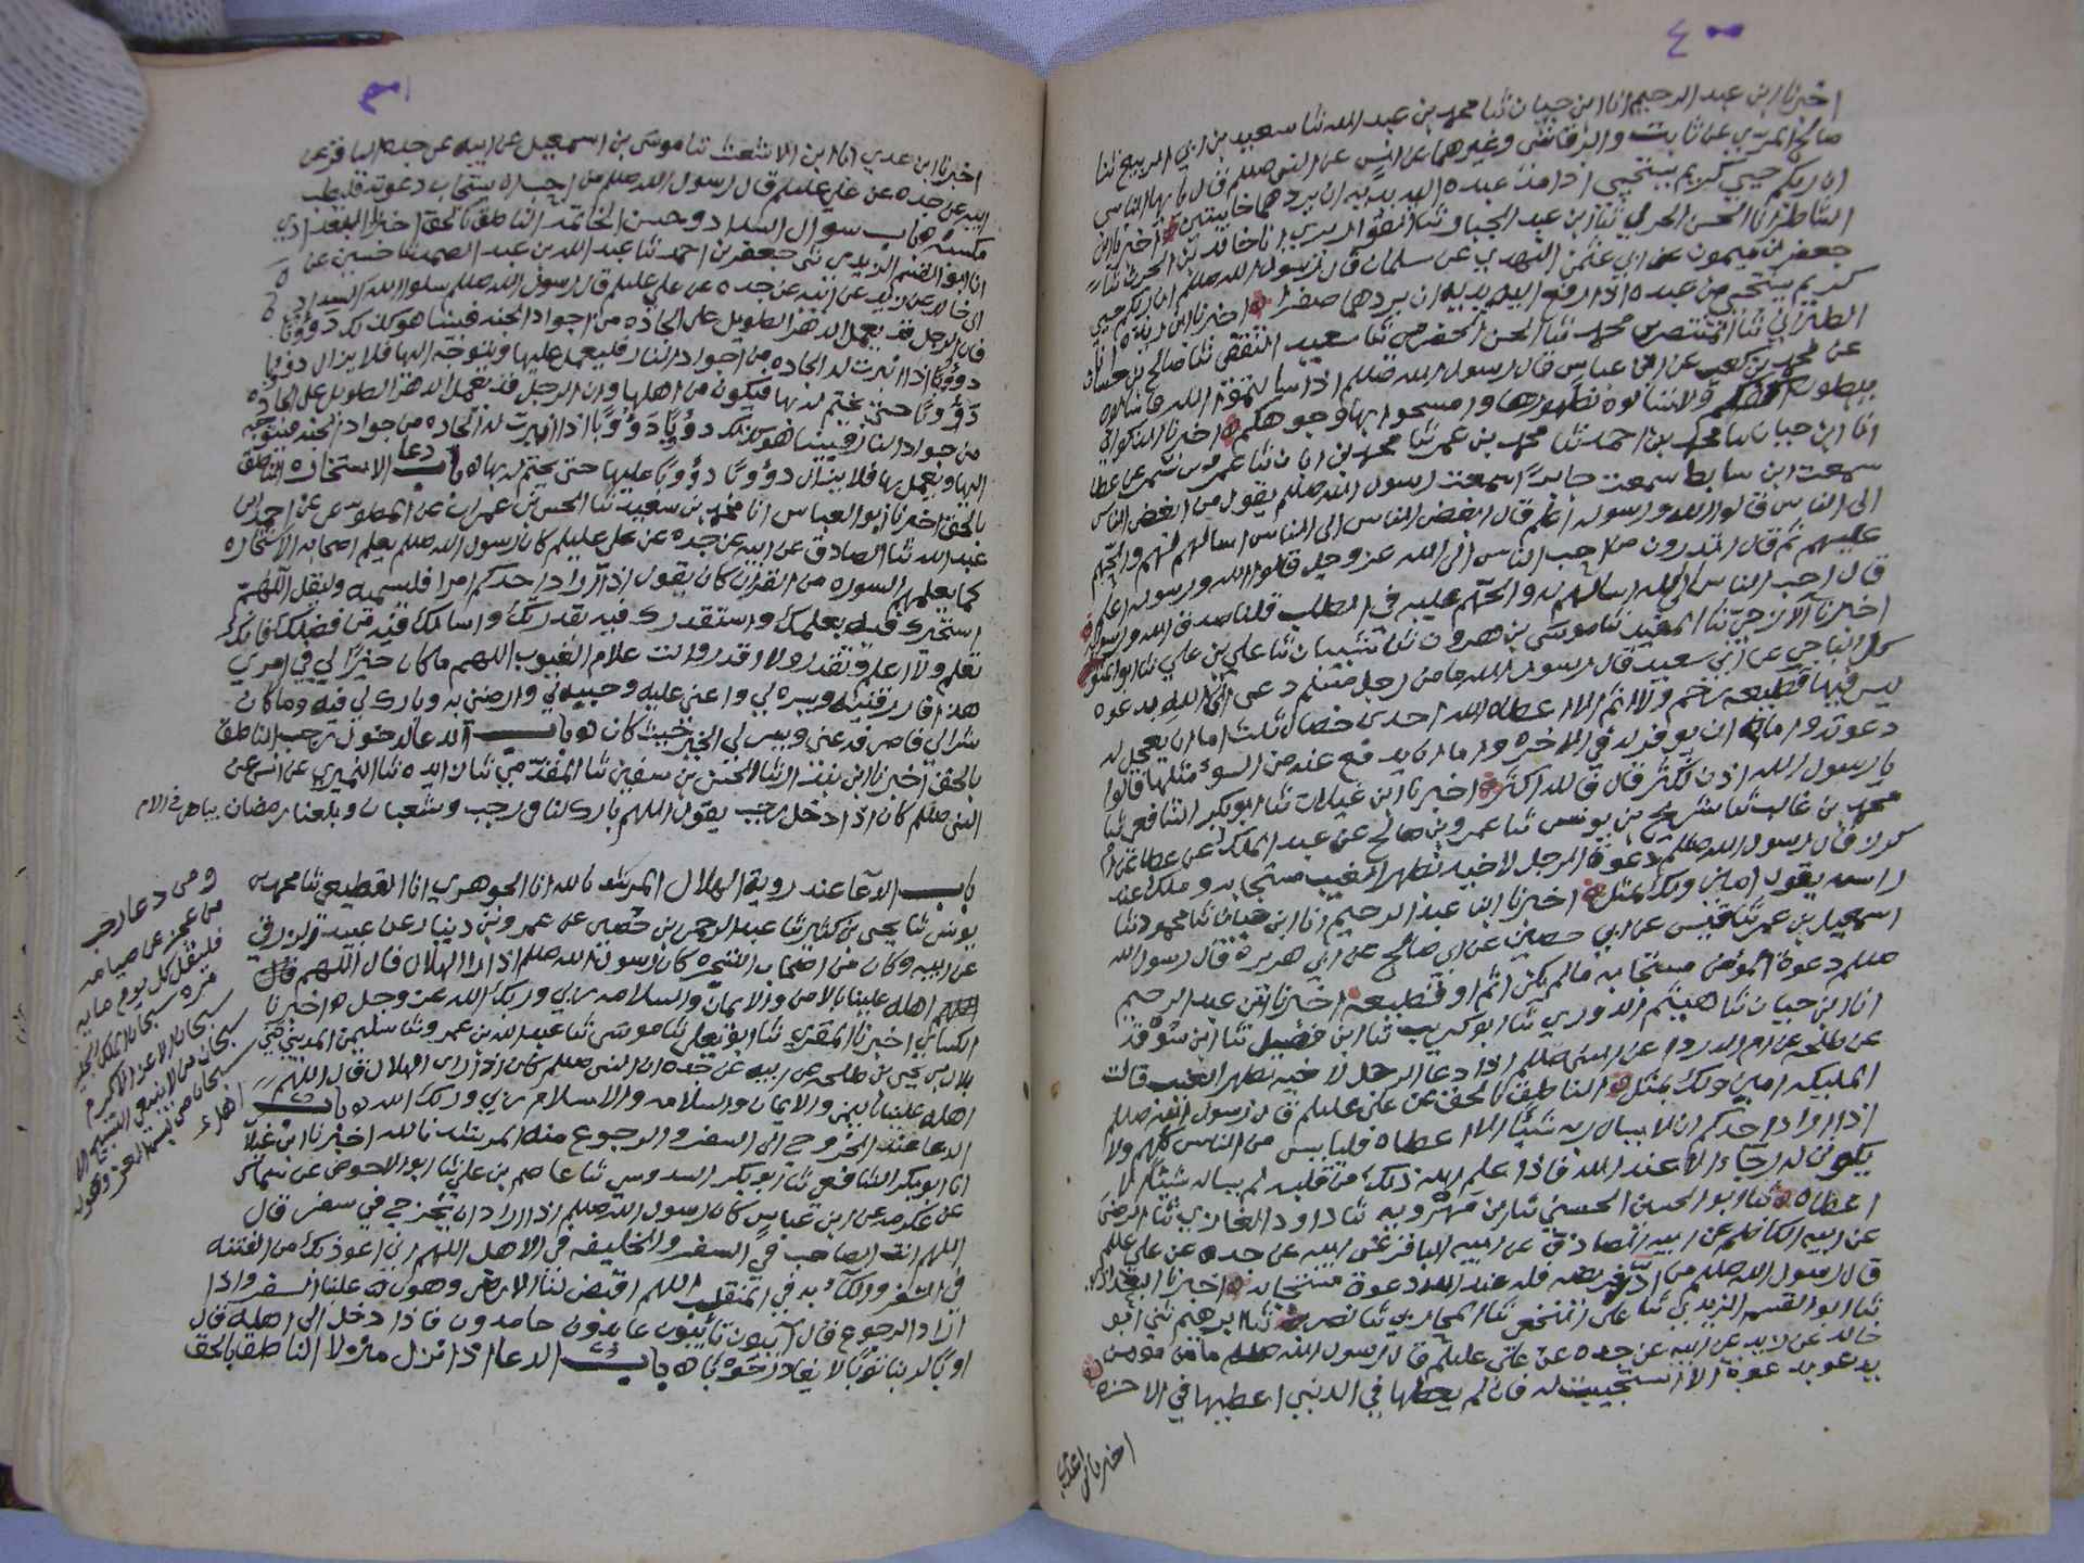 ٤٠٠
اخبرنا ابن عبد الرحيم انا ابن حيان ثنا محمد بن عبد الله ثنا سعيد بن ابي الربيع ثنا
صالح المري عن ثابت والرقاشي وغيرهما عن انس عن النبي صللم قال يا ايها الناس
ان ربكم حيي كريم يستحيي اذا مد عبده اليه يديه ان يردهما خايبتين اخبرنا ابن
الشاطر انا الحسن الحربي ثنا ابن عبد الجبار ثنا انا خالد بن الحرث ثنا
جعفر بن ميمون عن ابي عثمن النهدي عن سلمان قال رسول الله صللم ان ربكم حيي
كريم يستحيي من عبده اذا رفع اليه يديه ان يردهما صفرا اخبرنا ابن ريذه انا
الطبراني ثنا المنتصر بن محمد ثنا الحسن ثنا سعيد ثنا صالح بن حسان
عن محمد بن كعب عن ابن عباس قال رسول الله صللم اذا سالتموا الله فاسالوه
ببطون ولا تسالوه بظهورها وامسحوا بها وجوهكم اخبرنا الذكواني
انا ابن حيان ثنا محمد بن احمد ثنا محمد بن عمر ثنا محمد بن ابان ثنا عمرو بن شمر عن عطا
سمعت ابن سابط سمعت جابرا سمعت رسول الله صللم يقول من ابغض الناس
الى الناس قالوا الله ورسوله اعلم قال ابغض الناس الى الناس اسالهم لهم والحهم
عليهم ثم قال اتدرون من احب الناس الى الله عز وجل قالوا الله ورسوله اعلم
قال احب الناس الى الله اسالهم له والحهم عليه في الطلب قلنا صدق الله ورسوله
اخبرنا الازجي ثنا المفيد ثنا موسى بن هرون ثنا شيبان ثنا علي بن علي ثنا ابو المتو
كل الناجي عن ابي سعيد قال رسول الله ما من رجل مسلم دعى الى الله بدعوه
ليس فيها قطيعه رحم ولا اثم الا اعطاه الله احدى خصال ثلث اما ان يعجل له
دعوته واما ان يوخر له في الاخره واما ان يدفع عنه من السوء مثلها قالوا
يا رسول الله اذن نكثر قال فالله اكثر اخبرنا ابن غيلان ثنا ابو بكر الشافعي ثنا
محمد بن غالب ثنا سريج بن يونس ثنا عمرو بن صالح عن عبد الملك عن عطا عن ام
كرز قال رسول الله صللم دعوة الرجل لاخيه بظهر الغيب مستجابه وملك عند
راسه يقول امين ولك بمثل اخبرنا ابن عبد الرحيم انا ابن حيان ثنا محمود ثنا
اسمعيل بن عمر ثنا قيس عن ابي حصين عن ابي صالح عن ابي هريرة قال رسول الله
صللم دعوة المومن مستجابه مالم يكن اثم او قطيعه اخبرنا ابن عبد الرحيم
انا ابن حيان ثنا هيثم الدوري ثنا ابو كريب ثنا ابن فضيل ثنا ابن سوقه
عن طلحه عن ام الدردا عن النبي صللم اذا دعا الرجل لاخيه بظهر الغيب قالت
المليكه امين ولك بمثل الناطق بالحق عن علي عليلم قال رسول الله صللم
اذا اراد احدكم ان لا يسال ربه شيئا الا اعطاه فلياييس من الناس كلهم ولا
يكون له رجاء الا عند الله فاذا علم الله ذلك من قلبه لم يساله شيئا الا
اعطاه ثنا ابو الحسين الحسيني ثنا ابن مهرويه ثنا داود الغازي ثنا الرضى
عن ابيه الكاظم عن ابيه الصادق عن ابيه الباقر عن ابيه عن جده عن علي عليلم
قال رسول الله صللم من ادى فريضه فله عند الله دعوة مستجابه اخبرنا البغدادي
ثنا ابو القسم الزيدي ثنا علي النخعي ثنا المحاربي ثنا نصر ثنا ابرهيم ثني ابو
خالد عن زيد عن ابيه عن جده عن علي عليلم قال رسول الله صللم ما من مومن
يدعو بدعوة الا استجيبت له فان لم يعطها في الدنيى اعطيها في الاخره
اخبرنا ابن عدي
٤٠١
اخبرنا ابن عدي انا ابن الاشعث ثنا موسى بن اسمعيل عن ابيه عن جده الباقر عن
ابيه عن جده عن علي عليلم قال رسول الله صللم من احب ان يستجاب دعوته فليطب
مكسبه باب سوال السداد وحسن الخاتمه الناطق بالحق اخبرنا البغدادي
انا ابو القسم الزيدي ثني جعفر بن احمد ثنا عبد الله بن عبد الصمد ثنا حسين عن
ابي خالد عن زيد عن ابيه عن جده عن علي عليلم قال رسول الله صللم سلوا الله السداد
فان الرجل قد يعمل الدهر الطويل على الجاده من اجواد الجنه فبينا هو كذلك دؤوبا
دؤوبا اذ انبرت له الجاده من اجواد النار فيعمل عليها ويتوجه اليها فلا يزال دؤوبا
دؤوبا حتى يختم له بها فيكون من اهلها وان الرجل قد يعمل الدهر الطويل على الجاده
من جواد النار فبينا هو كذلك دؤوبا دؤوبا اذا انبرت له الجاده من جواد الجنه فيتوجه
اليها ويعمل بها فلا يزال دؤوبا دؤوبا عليها حتى يختم له بها باب دعا الاستخاره الناطق
بالحق اخبرنا ابو العباس انا محمد بن سعيد ثنا الحسن بن عمران عن عن احمد بن
عبد الله ثنا الصادق عن ابيه عن جده عن علي عليلم كان رسول الله صللم يعلم اصحابه الاستخاره
كما يعلمهم السوره من القران كان يقول اذا اراد احدكم امرا فليسميه وليقل اللهم
استخيرك فيه بعلمك واستقدرك فيه بقدرتك واسالك فيه من فضلك فانك
تعلم ولا اعلم وتقدر ولا اقدر وانت علام الغيوب اللهم ما كان خيرا لي في امري
هذا فارزقنيه ويسره لي واعني عليه وحببه لي وارضني به وبارك لي فيه وما كان
شرا لي فاصرفه عني ويسر لي الخير حيث كان باب الدعا لدخول رجب الناطق
بالحق اخبرنا ابن بندار ثنا الحسن بن سفين ثنا المقدمي ثنا زايده ثنا النميري عن انس عن
النبي صللم كان اذا دخل رجب يقول اللهم بارك لنا في رجب وشعبان وبلغنا رمضان بياض في الام
باب الدعا عند روية الهلال المرشد بالله انا الجوهري انا القطيعي ثنا محمد بن
يونس ثنا يحيى بن كثير ثنا عبد الرحمن بن حصين عن عمرو بن دينار عن عبيد
عن ابيه وكان من اصحاب الشجره كان رسول الله صللم اذا راا الهلال قال اللهم
اهله علينا بالامن والايمان والسلامه ربي وربك الله عز وجل اخبرنا
الكسائي اخبرنا المقري ثنا ابو يعلى ثنا موسى ثنا عبد الله بن عمر وثنا سليمن المديني ثني
بلال بن يحيى بن طلحه عن ابيه عن جده ان النبي صللم كان اذا راى الهلال قال اللهم
اهله علينا باليمن والايمان والسلامه والاسلام ربي وربك الله باب
الدعا عند الخروج الى السفر والرجوع منه المرشد بالله اخبرنا ابن غيلان
انا ابو بكر الشافعي ثنا ابو بكر السدوسي ثنا عاصم بن علي ثنا ابو الاحوص عن سماك
عن عكرمه عن ابن عباس كان رسول الله صللم اذا اراد ان يخرج في سفر قال
اللهم انت الصاحب في السفر والخليفه في الاهل اللهم اني اعوذ بك من الفتنه
في السفر والكآبه في المنقلب اللهم اقبض لنا الارض وهون علينا السفر واذا
اراد الرجوع قال آئبون تائبون عابدون حامدون فاذا دخل الى اهله قال
اوبا لربنا توبا لا يغادر حوبا باب الدعا اذا نزل منزلا الناطق بالحق
ومن دعا رجب
من عجز عن صيامه
فليقل كل يوم مايه
مره سبحان الملك الجليل
سبحان الاعز الاكرم
سبحان من لا ينبغي التسبيح الا له
سبحان من لبس العز وهو له
اهل